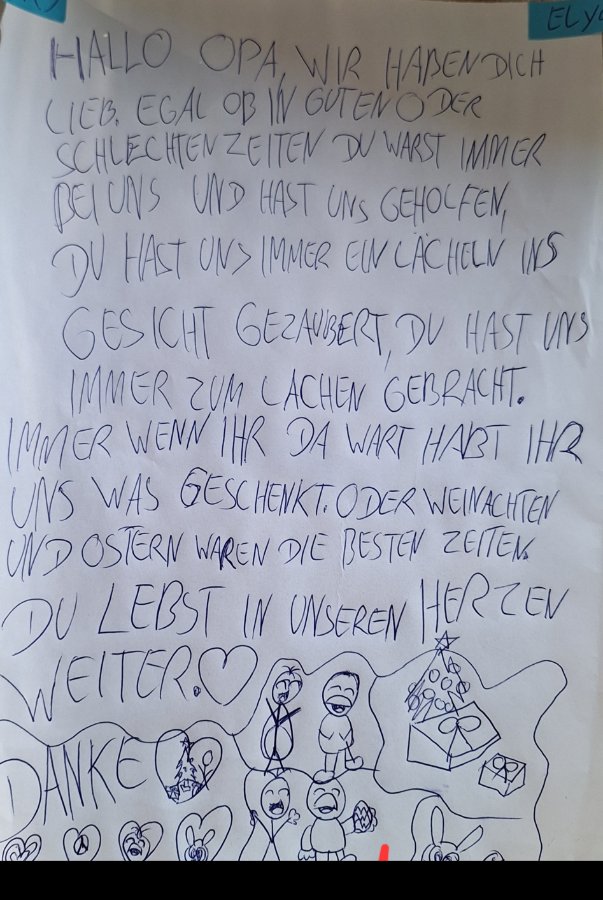 HALLO OPA, WIR HABEN DICH
LIEB. EGAL OB IN GUTEN ODER
SCHLECHTEN ZEITEN DU WARST IMMER
BEI UNS UND HAST UNS GEHOLFEN,
DU HAST UNS IMMER EIN LÄCHELN INS
GESICHT GEZAUBERT, DU HAST UNS
IMMER ZUM LACHEN GEBRACHT.
IMMER WENN IHR DA WART HABT IHR
UNS WAS GESCHENKT. ODER WEINACHTEN
UND OSTERN WAREN DIE BESTEN ZEITEN.
DU LEBST IN UNSEREN HERZEN
WEITER.
DANKE